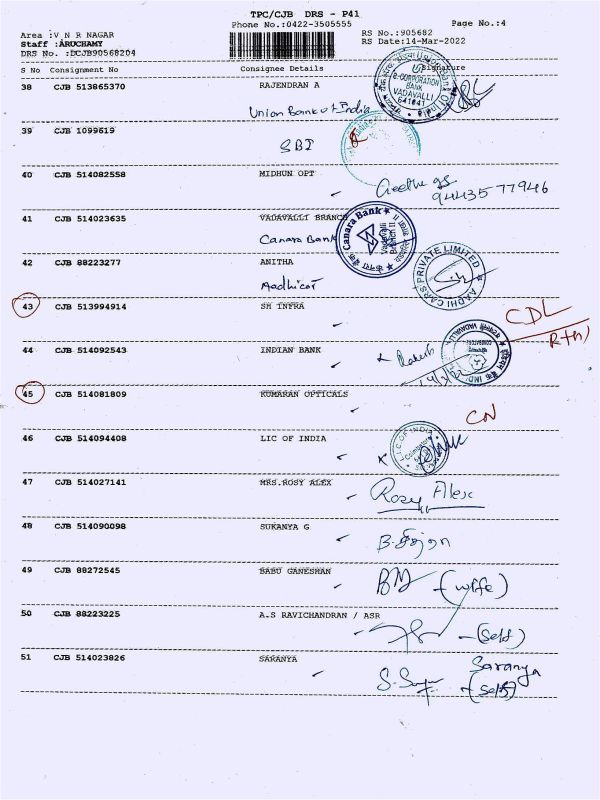 TPC/CJB DRS - P41
Phone No.:0422-3505555
Page No.:4
Area :V N R NAGAR
Staff :ARUCHAMY
DRS No. :DCJB90568204
RS No.:905682
RS Date:14-Mar-2022
S No Consignment No Consignee Details Signature
38 CJB 513865370 RAJENDRAN A
Union Bank of India
e-CORPORATION BANK
VADAVALLI
641041
39 CJB 1099619
SBI
40 CJB 514082558 MIDHUN OPT
94435 77946
41 CJB 514023635 VADAVALLI BRANCH
Canara Bank
Canara Bank
42 CJB 88223277 ANITHA
Aadhicar
AADHI CARS PRIVATE LIMITED
43 CJB 513994914 SH INFRA
CDL
44 CJB 514092543 INDIAN BANK
45 CJB 514081809 KUMARAN OPTICALS
CN
46 CJB 514094408 LIC OF INDIA
L.I.C. OF INDIA
47 CJB 514027141 MRS.ROSY ALEX
Rosy Alex
48 CJB 514090098 SUKANYA G
49 CJB 88272545 BABU GANESHAN
(wife)
50 CJB 88223225 A.S RAVICHANDRAN / ASR
(Self)
51 CJB 514023826 SARANYA
Saranya
(Self)